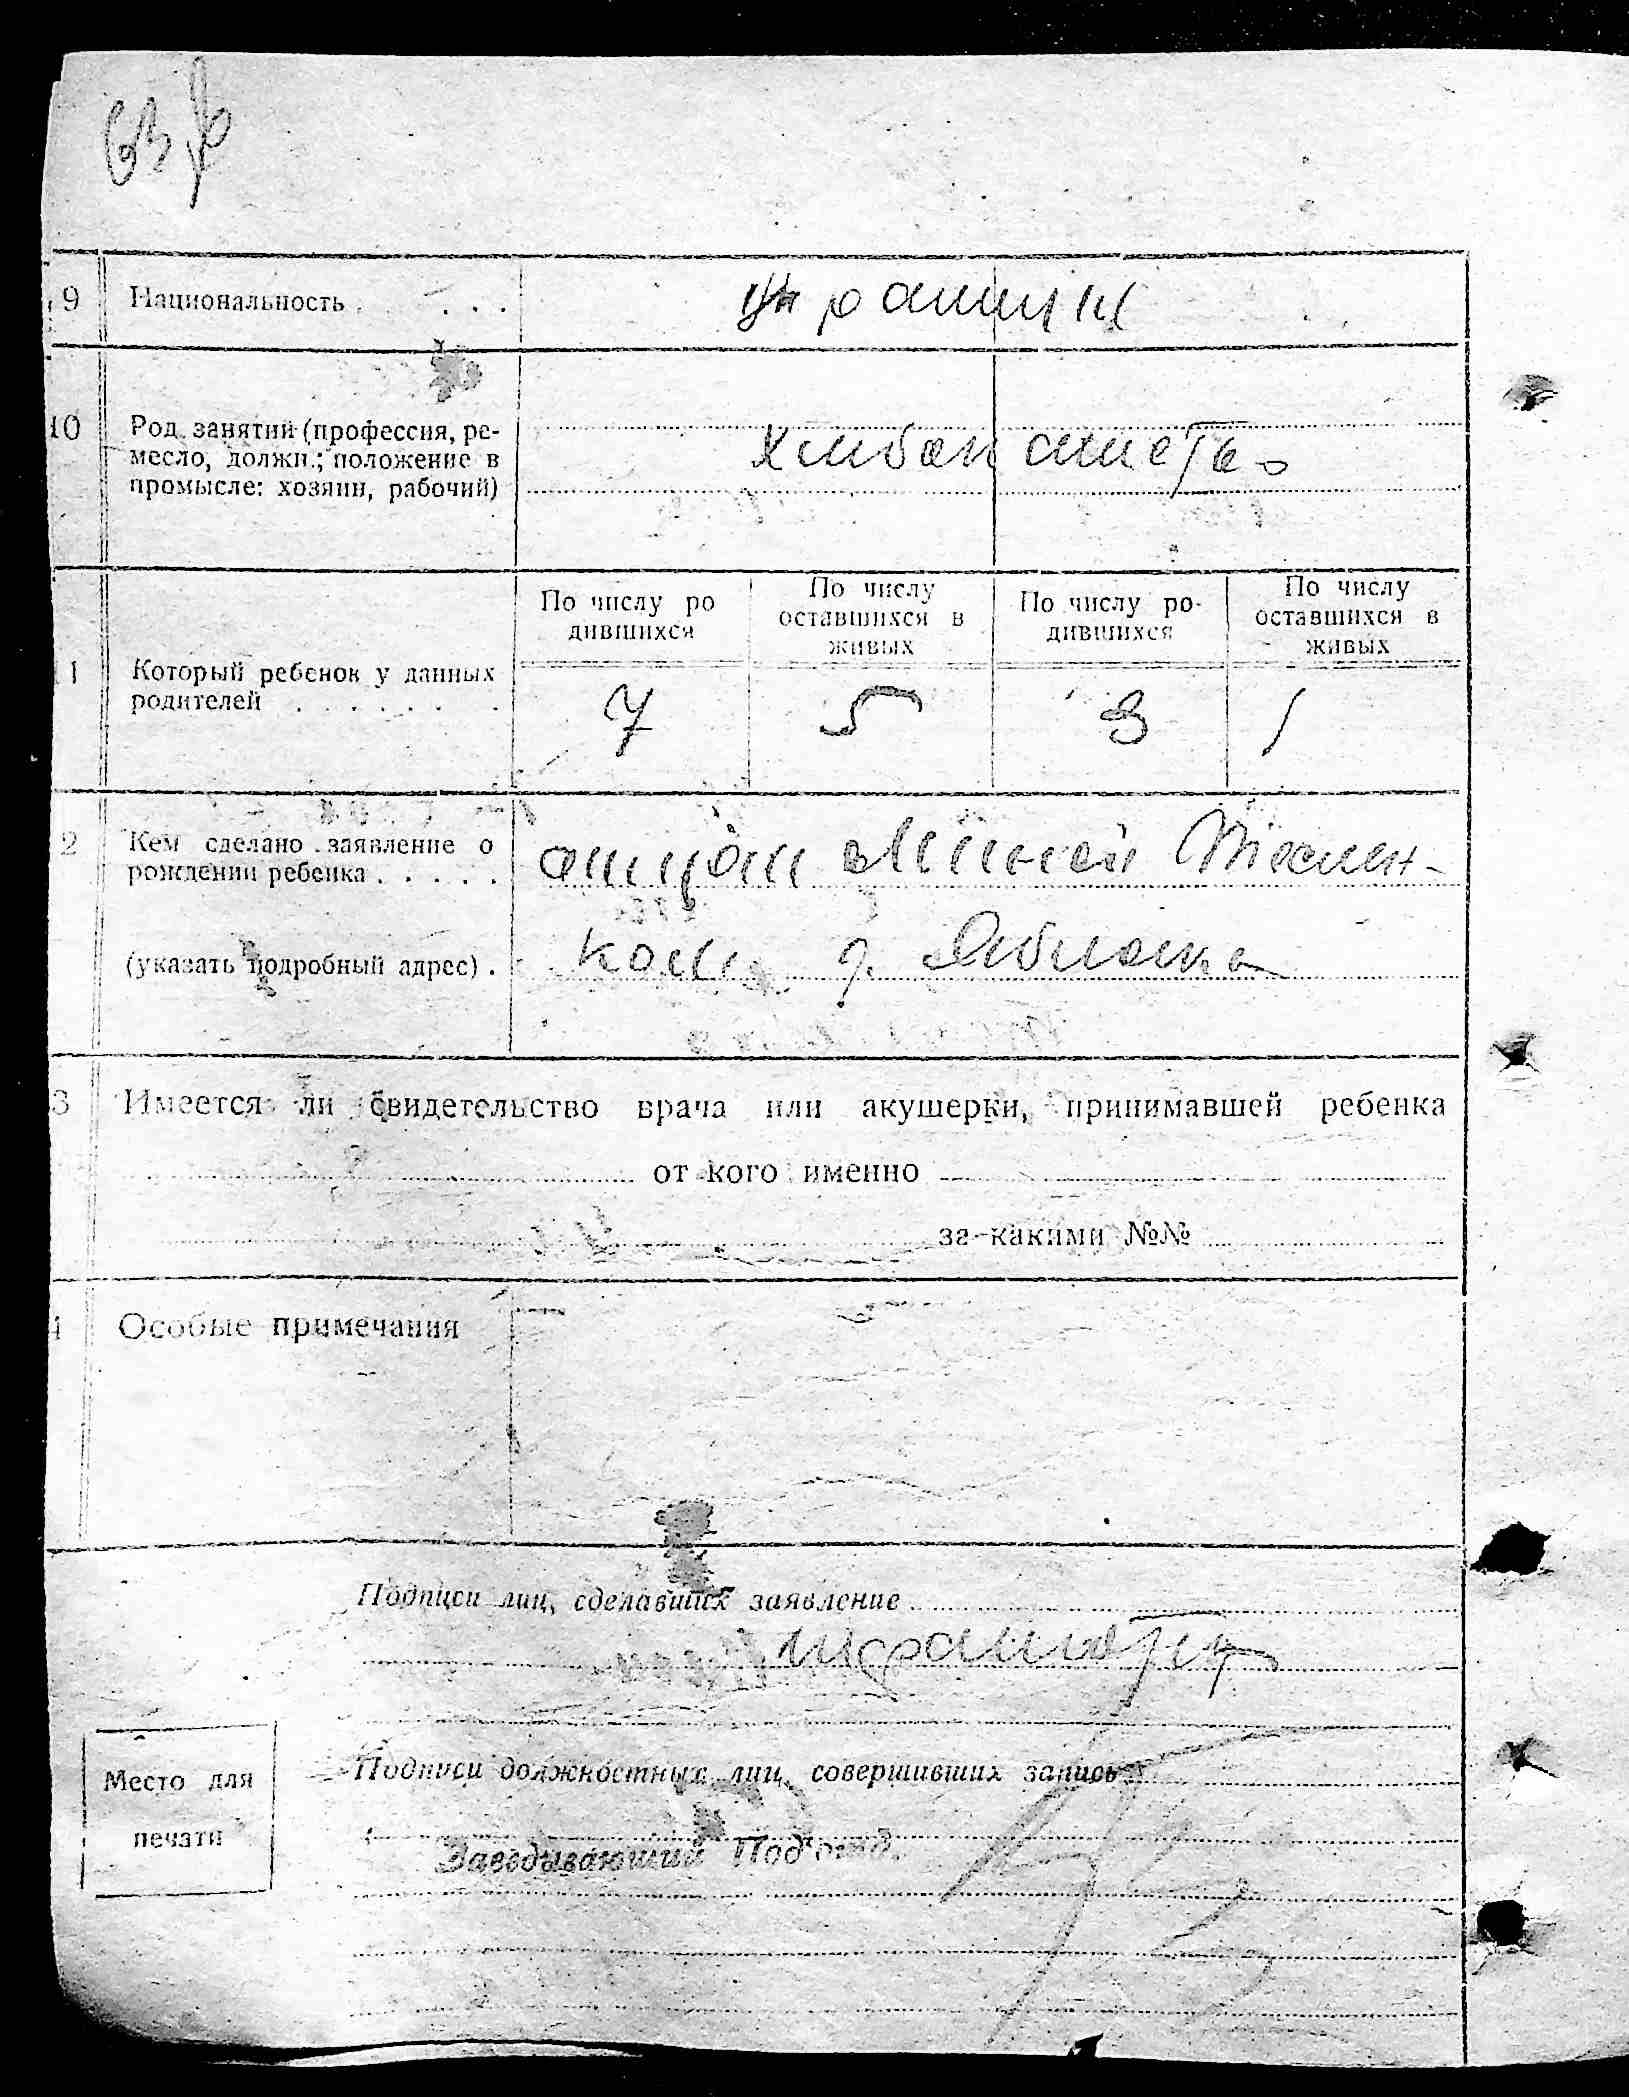 9 Национальность . . . .
украинцы
10 Род занятий (профессия, ре-
месло, должн.; положение в
промысле: хозяин, рабочий)
хлибопашетво
По числу ро
дившихся
По числу
оставшихся в
живых
По числу ро-
дившихся
По числу
оставшихся в
живых
1 Который ребенок у данных
родителей . . . . . . .
7 5 3 1
2 Кем сделано заявление о
рождении ребенка . . . . .
отцом Миней Теслен-
(указать подробный адрес) .
ком д.
3 Имеется ли свидетельство врача или акушерки, принимавшей ребенка
от кого именно
за какими №№
Особые примечания
Подписи лиц, сделавших заявление
Подписи должностных лиц, совершивших запись
Место для
печати
Заведывающий Под'отд.